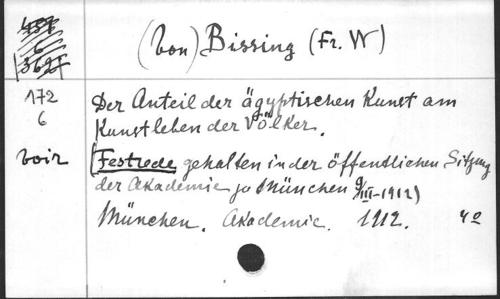 (von) Bissing (Fr. W)
172
6
Der Anteil der ägyptischen Kunst am
Kunstleben der Völker.
voir
(Festrede gehalten in der öffentlichen Sitzung
der Akademie zu München 9/III-1912)
München. Akademie. 1912. 4o